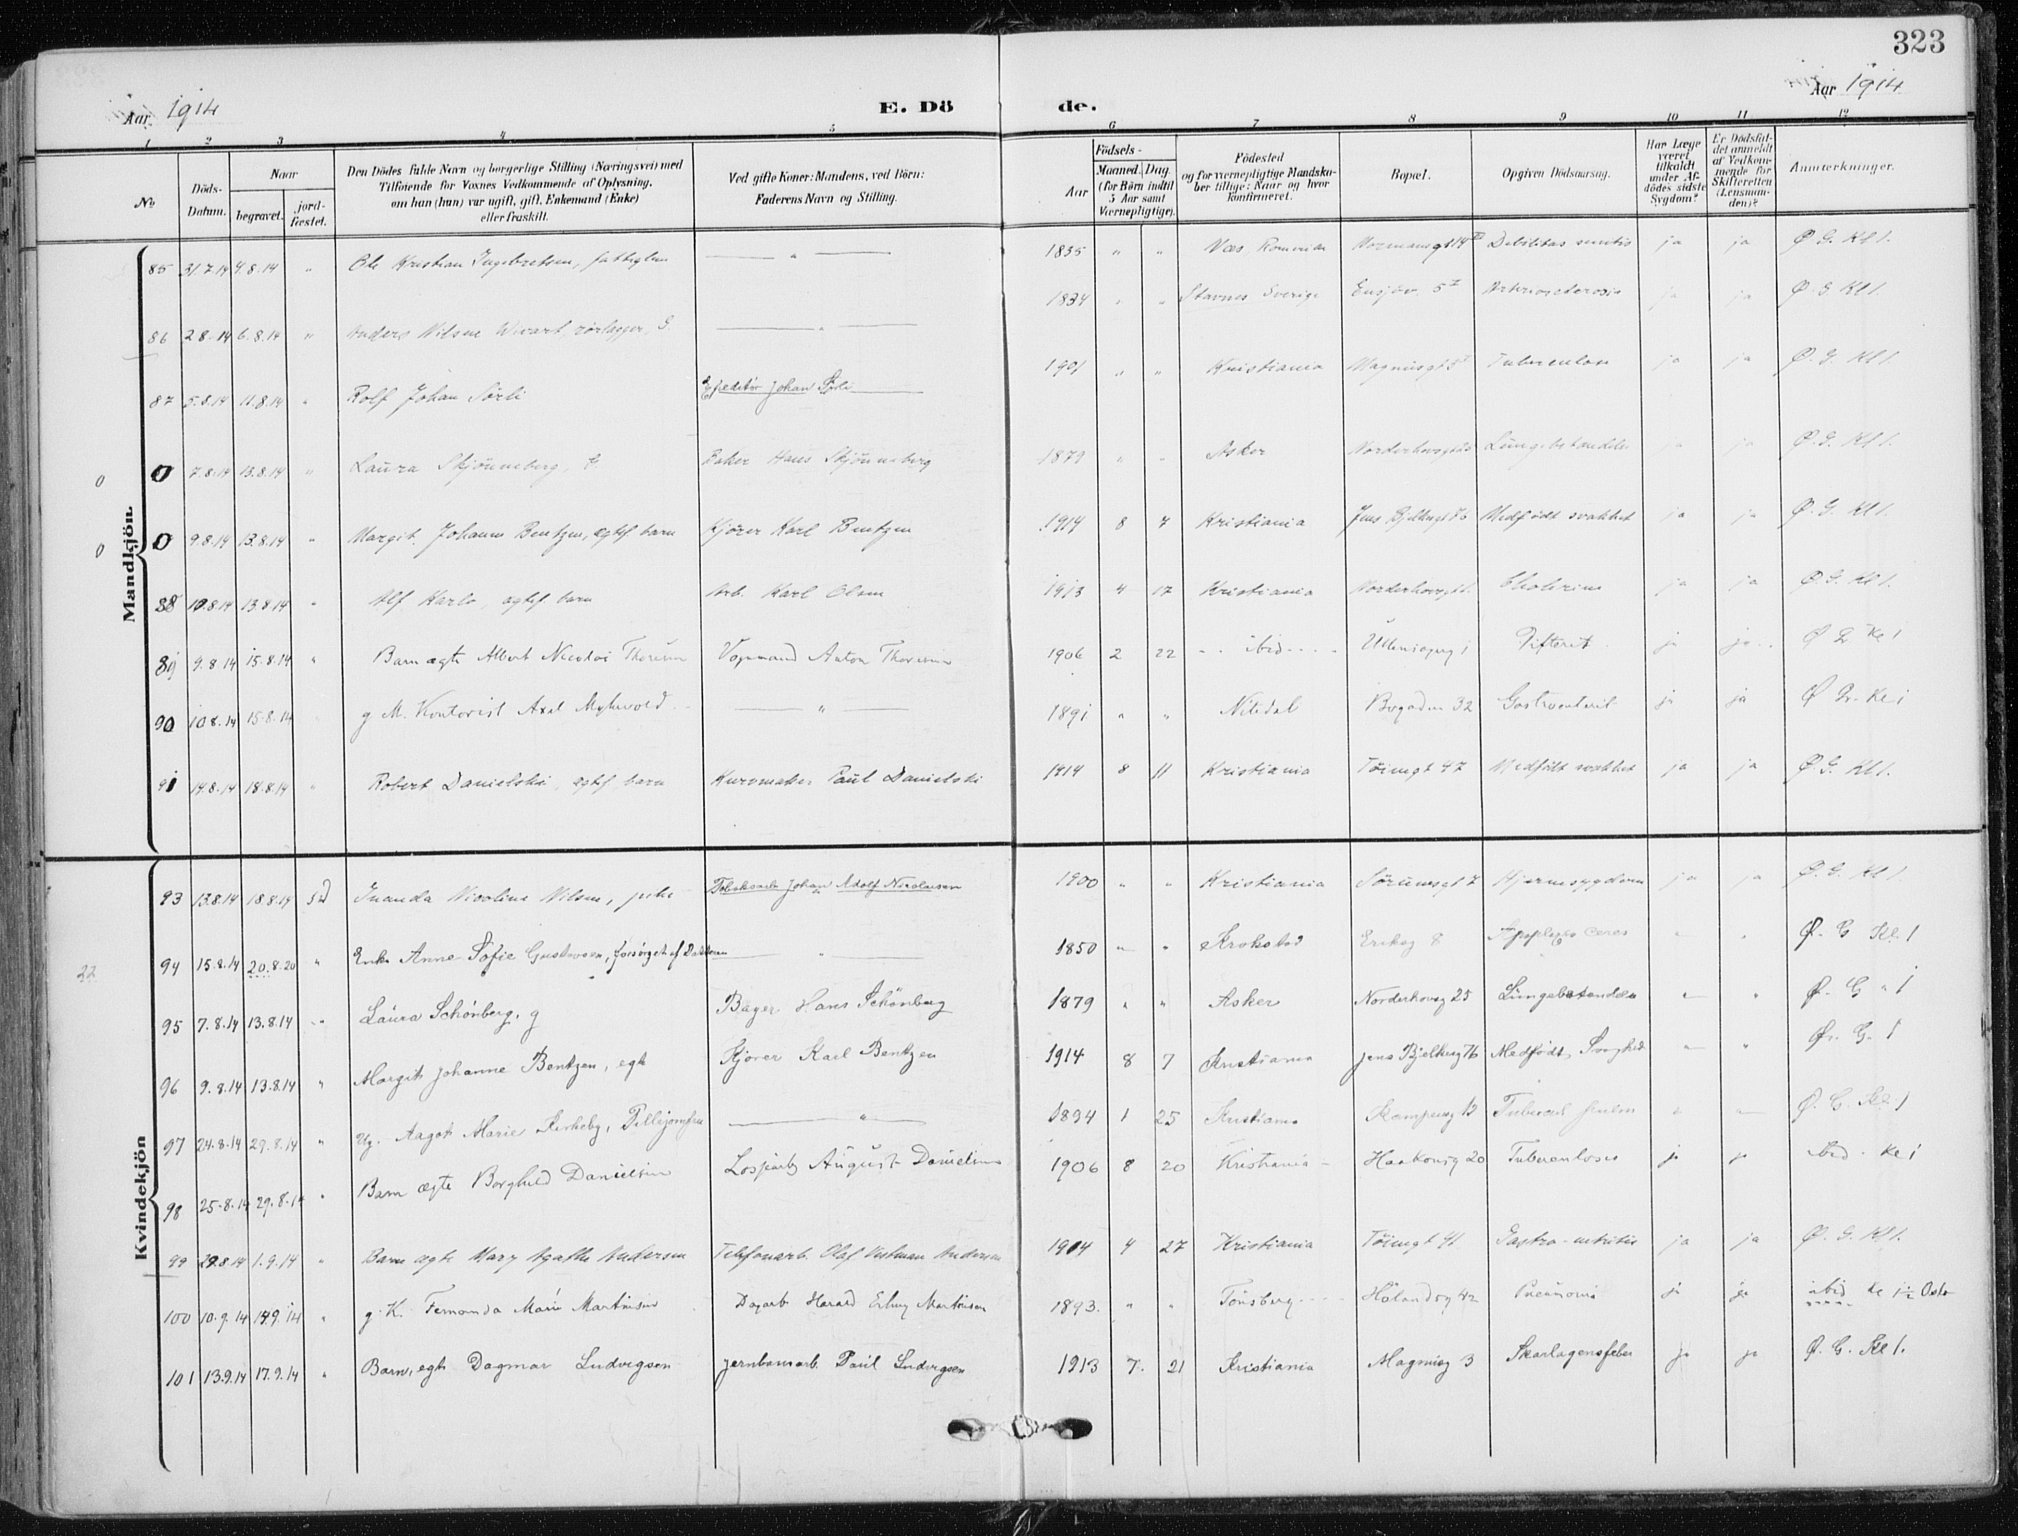 323
Aar 1914
E. Dö de.
Aar 1914
1 2 3 4 5 6 7 8 9 10 11 12
No
Döds-Datum.
Naar
begravet.
jord-fæstet.
Den Dödes fulde Navn og borgerlige Stilling (Næringsvei) med Tilföiende for Voxnes Vedkommende af Oplysning, om han (hun) var ugift, gift, Enkemand (Enke) eller fraskilt.
Ved gifte Koner: Mandens, ved Börn: Faderens Navn og Stilling.
Födsels-
Aar
Maaned. Dag.
(for Börn indtil 5 Aar samt Værnepligtige).
Födested og for værnepligtige Mandskaber tillige: Naar og hvor konfirmeret.
Bopæl.
Opgiven Dödsaarsag.
Har Læge været tilkaldt under Afdödes sidste Sygdom?
Er Dödsfaldet anmeldt af Vedkommende for Skifteretten (Lensmanden)?
Anmerkninger.
Mandkjön.
85 31.7.14 4.8.14 " Ole Kristian Ingebretsen, — " — 1835 " " Næs Romerike Normannsgt 14 Debilitas senilis ja ja Ø. G. Kl 1.
86 2.8.14 6.8.14 " Anders Nilsen — " — 1834 " " Stavnes Sverige Ensjöv. 5 Arteriosclerosis ja ja Ø. G. Kl 1.
87 5.8.14 11.8.14 " Rolf Johan Sörli Expeditör Johan Sörli 1901 " " Kristiania Magnusgt 5 Tuberculose ja ja Ø. G. Kl 1.
0 0 7.8.14 13.8.14 " Laura Skjönneberg, G. Baker Hans Skjönneberg 1879 " " Asker Norderhovsgt 25 Lungebetændelse ja ja Ø. G. Kl 1.
0 0 9.8.14 13.8.14 " Margit Johanne Bentzen, ægtef barn Kjörer Karl Bentzen 1914 8 7 Kristiania Jens Bjelkesgt 76 Medfödt svakhet ja ja Ø. G. Kl 1.
88 10.8.14 13.8.14 " Alf Karlo, ægtef. barn Arb. Karl Olsen 1913 4 17 Kristiania Norderhovsgt Cholerine ja ja Ø. G. Kl 1.
89 9.8.14 15.8.14 " Barn ægte Albert Nicolai Thoresen Vognmand Anton Thoresen 1906 2 22 ibid Difterit ja ja Ø G Kl 1
90 10.8.14 15.8.14 " g M. Kontorist Axel Myhrvold — " — 1891 " " Nitedal Bogaden 32 Gastroenterit ja ja Ø G Kl 1
91 14.8.14 18.8.14 " Robert Danielski, ægtef barn Kurvmaker Paul Danielski 1914 8 11 Kristiania Töiengt 47 Medfödt svakhet ja ja Ø. G. Kl 1.
Kvindekjön
93 13.8.14 18.8.14 Inanda Nicoline Nilsen, pike Johan Adolf Nicolaisen 1900 " " Kristiania Sörumsgt 7 Hjernesygdom ja ja Ø. G. Kl 1.
22 94 15.8.14 20.8.20 " Enke Anne Sofie Gustavsen, forsörget af Datteren — " — 1850 — " Krokstad Eriksg 8 Apoplexia ceres " " Ø. G Kl. 1
95 7.8.14 13.8.14 " Laura Schönberg, g Bager Hans Schönberg 1879 " " Asker Norderhovsg 25 Lungebetændelse " " Ø. G " 1
96 9.8.14 13.8.14 " Margit Johanne Bentzen, egte Kjörer Karl Bentzen 1914 8 7 Kristiania Jens Bjelkesg 76 Medfödt Svaghed " " Ø. G. 1
97 24.8.14 29.8.14 " Ug. Aagot Marie Kirkeby, Pillejomfru — " — 1894 1 25 Kristiania Kampensg 13 Tubercul pulm " " Ø. G. Kl 1
98 25.8.14 29.8.14 " Barn ægte Borghild Danielsen Lossjarb August Danielsen 1906 8 20 Kristiania Haakonsg 20 Tuberculosis ja ja ibid. Kl 1
99 29.8.14 1.9.14 " Barn ægte Mary Agathe Andersen Telefonarb. Olaf Andersen 1914 4 27 Kristiania Töiengt 41 Gastro-enteritis ja ja Ø. G. Kl 1.
100 10.9.14 14.9.14 " g. K. Fernanda Marie Martinsen Dagarb Harald Martinsen 1893. " " Tönsberg Hölandsg 42 Pneumoni ja ja ibid Kl 1 Oslo
101 13.9.14 17.9.14 " Barn, egte Dagmar Ludvigsen Jernbanearb. Paul Ludvigsen 1913 7. 21 Kristiania Magnusg 3 Skarlagensfeber ja ja Ø. G. Kl 1.